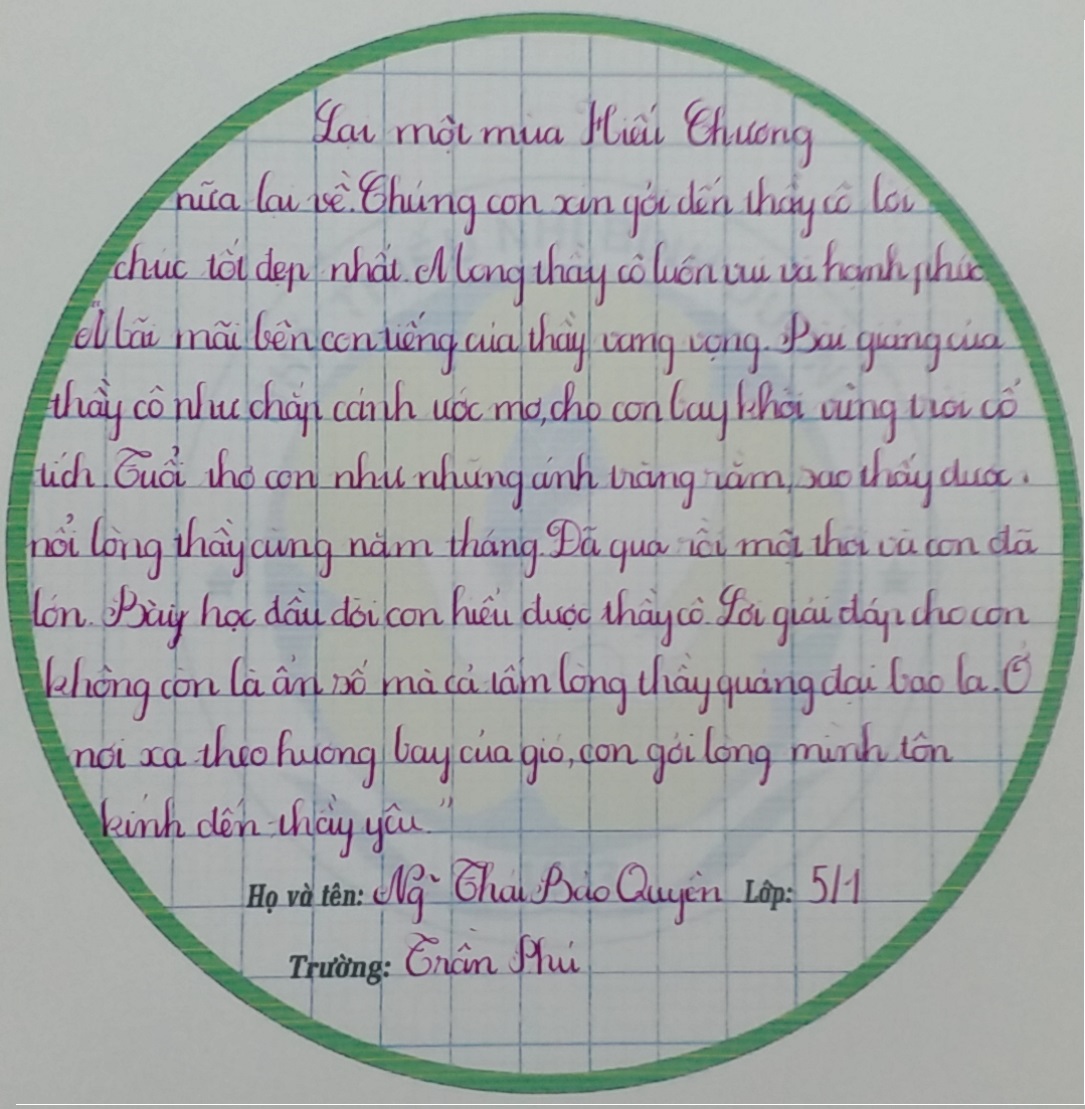 Lại một mùa Hiến Chương
nữa lại về. Chúng con xin gởi đến thầy cô lời
chúc tốt đẹp nhất. Mong thầy cô luôn vui và hạnh phúc
Mãi mãi bên con tiếng của thầy vang vọng. Bài giảng của
thầy cô như chắp cánh ước mơ, cho con bay khỏi vùng trời cổ
tích. Tuổi thơ con như những ánh trăng rằm, sao thấy được.
nổi lòng thầy cùng năm tháng. Đã qua rồi một thời và con đã
lớn. Bày học đầu đời con hiểu được thầy cô. Lời giải đáp cho con
không còn là ẩn số mà cả tấm lòng thầy quảng đại bao la. Ở
nơi xa theo hương bay của gió, con gởi lòng mình tôn
kính đến thầy yêu."
Họ và tên: Ng~ Thái Bảo Quyên Lớp: 5/1
Trường: Trần Phú